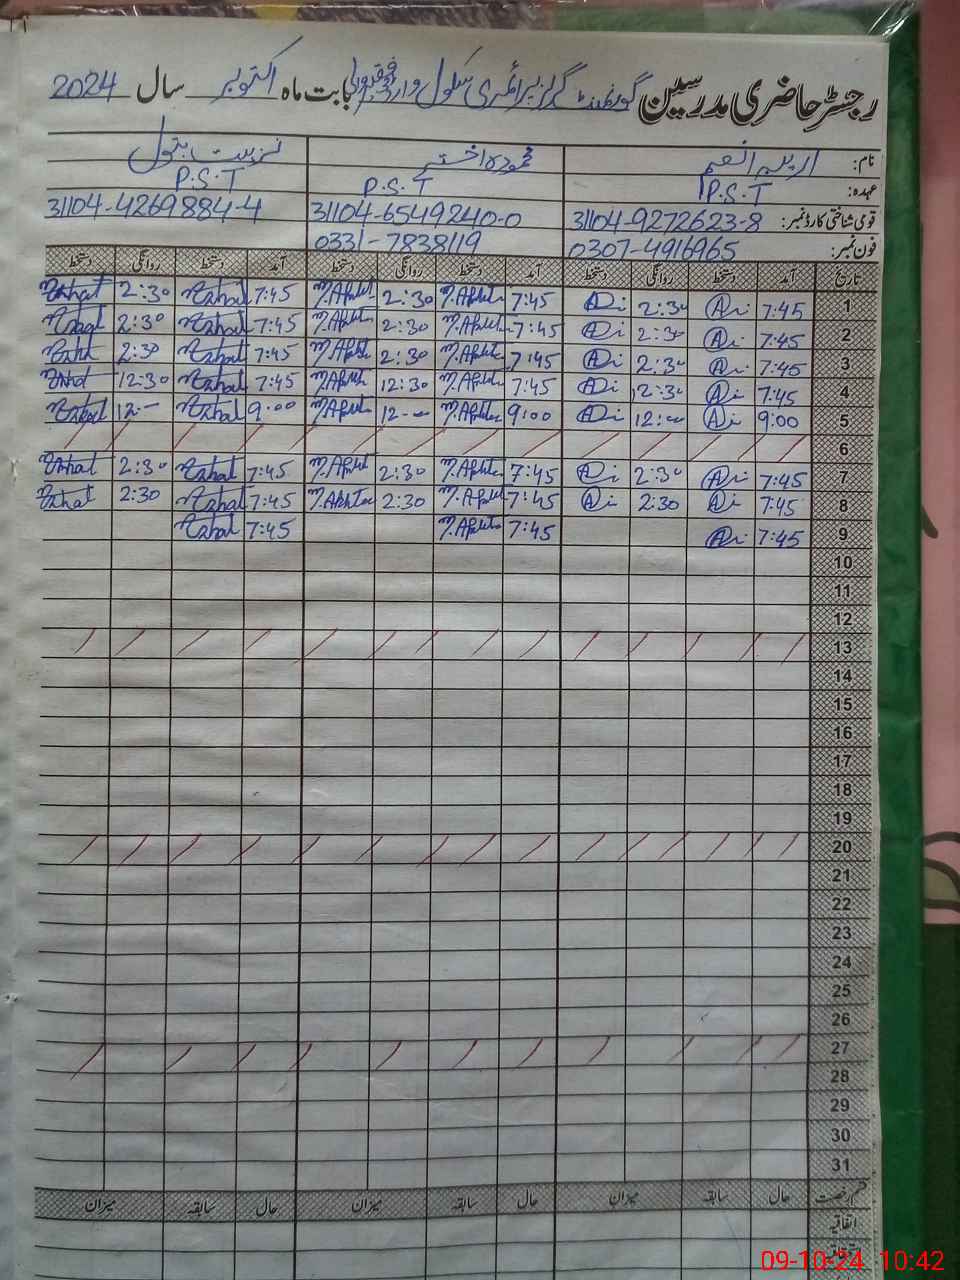 رجسٹر حاضری مدرسین گورنمنٹ گرلز پرائمری سکول بابت ماہ اکتوبر سال 2024
نام: محمودہ اختر نزہت بتول
عہدہ: P.S.T P.S.T P.S.T
قومی شناختی کارڈ نمبر: 31104-9272623-8 31104-6549240-0 31104-4269884-4
فون نمبر: 0307-4916965 0331-7838119
تاریخ آمد دستخط روانگی دستخط آمد دستخط روانگی دستخط آمد دستخط روانگی دستخط
1 7:45 2:30 7:45 M.Akhter 2:30 M.Akhter 7:45 Nzhat 2:30 Nzhat
2 7:45 2:30 7:45 M.Akhter 2:30 M.Akhter 7:45 Nzhat 2:30 Nzhat
3 7:45 2:30 7:45 M.Akhter 2:30 M.Akhter 7:45 Nzhat 2:30 Nzhat
4 7:45 12:30 7:45 M.Akhter 12:30 M.Akhter 7:45 Nzhat 12:30 Nzhat
5 9:00 12:00 9:00 M.Akhter 12:00 M.Akhter 9:00 Nzhat 12:00 Nzhat
6
7 7:45 2:30 7:45 M.Akhter 2:30 M.Akhter 7:45 Nzhat 2:30 Nzhat
8 7:45 2:30 7:45 M.Akhter 2:30 M.Akhter 7:45 Nzhat 2:30 Nzhat
9 7:45 7:45 M.Akhter 7:45 Nzhat
10
11
12
13
14
15
16
17
18
19
20
21
22
23
24
25
26
27
28
29
30
31
قسم رخصت حال سابقہ میزان حال سابقہ میزان حال سابقہ میزان
اتفاقیہ
09-10-24 10:42